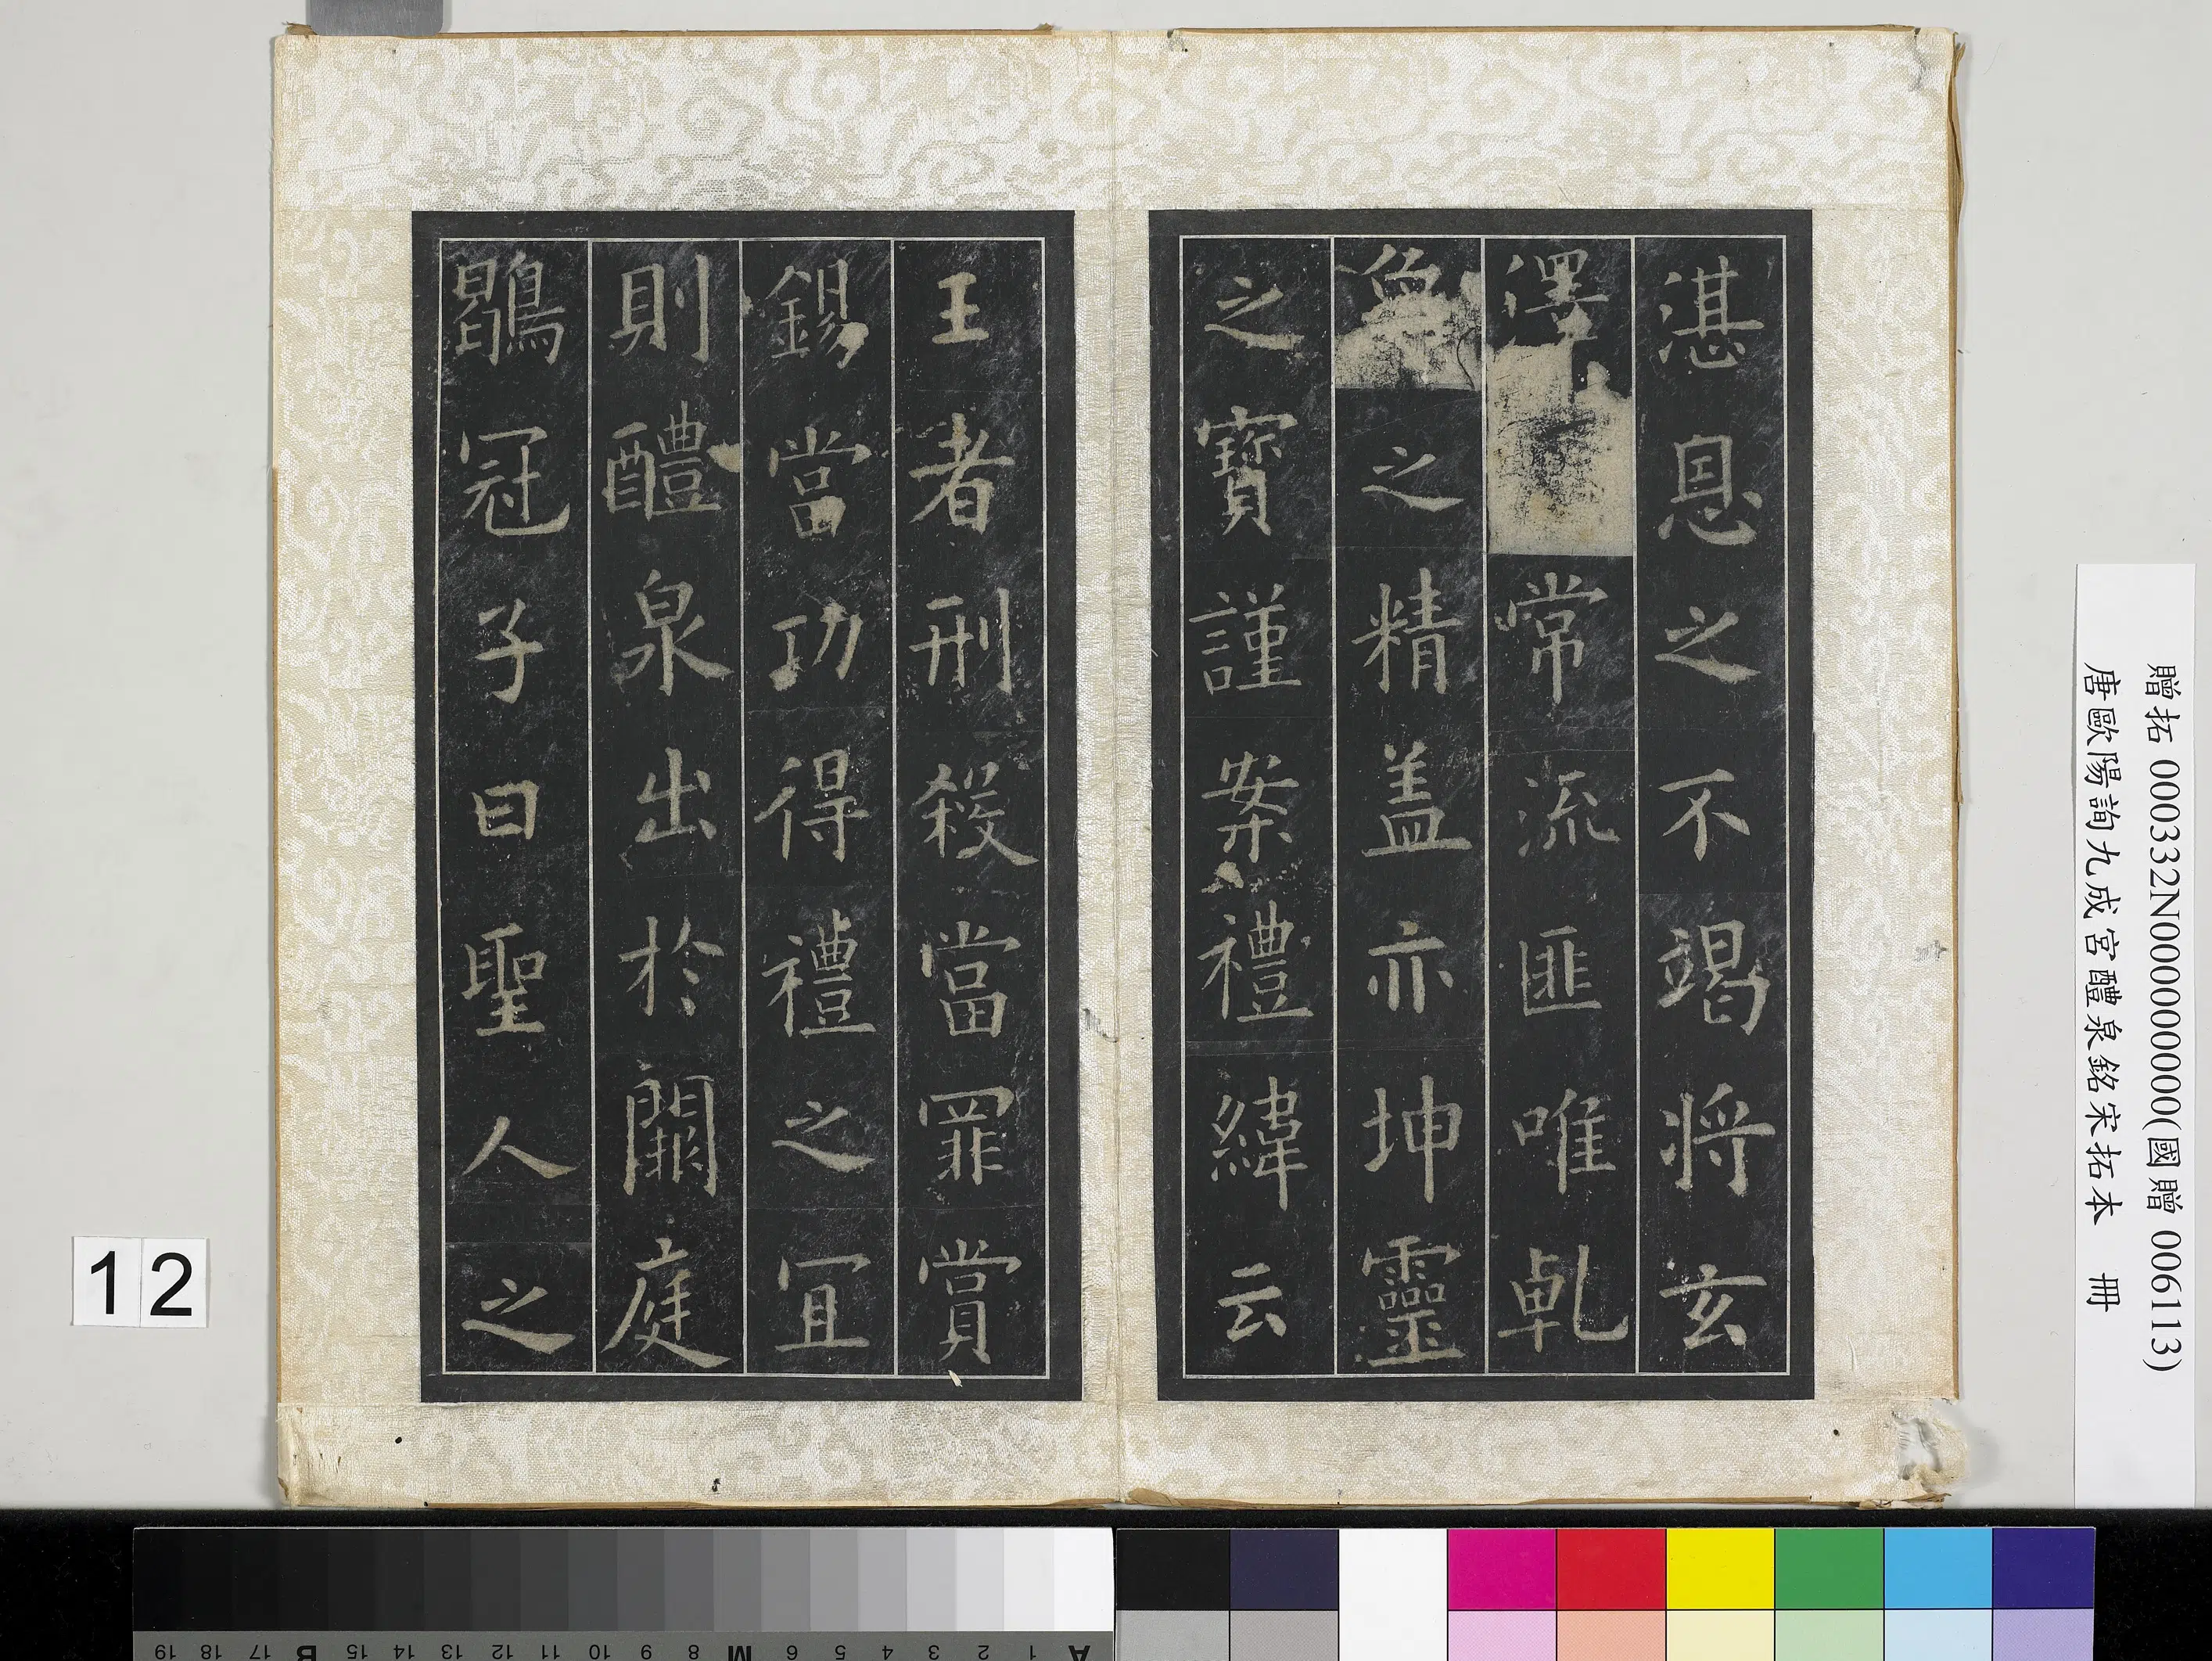 湛恩之不竭将玄
澤常流匪唯乹
象之精盖亦坤靈
之寶謹案禮緯云
王者刑殺當罪賞
錫當功得禮之冝
則醴泉出於闕庭
鶡冠子曰聖人之
贈拓 000332N000000000(國贈 006113)
唐歐陽詢九成宮醴泉銘宋拓本 冊
12
19 18 17 B 15 14 13 12 11 10 9 8 M 6 5 4 3 2 1 A